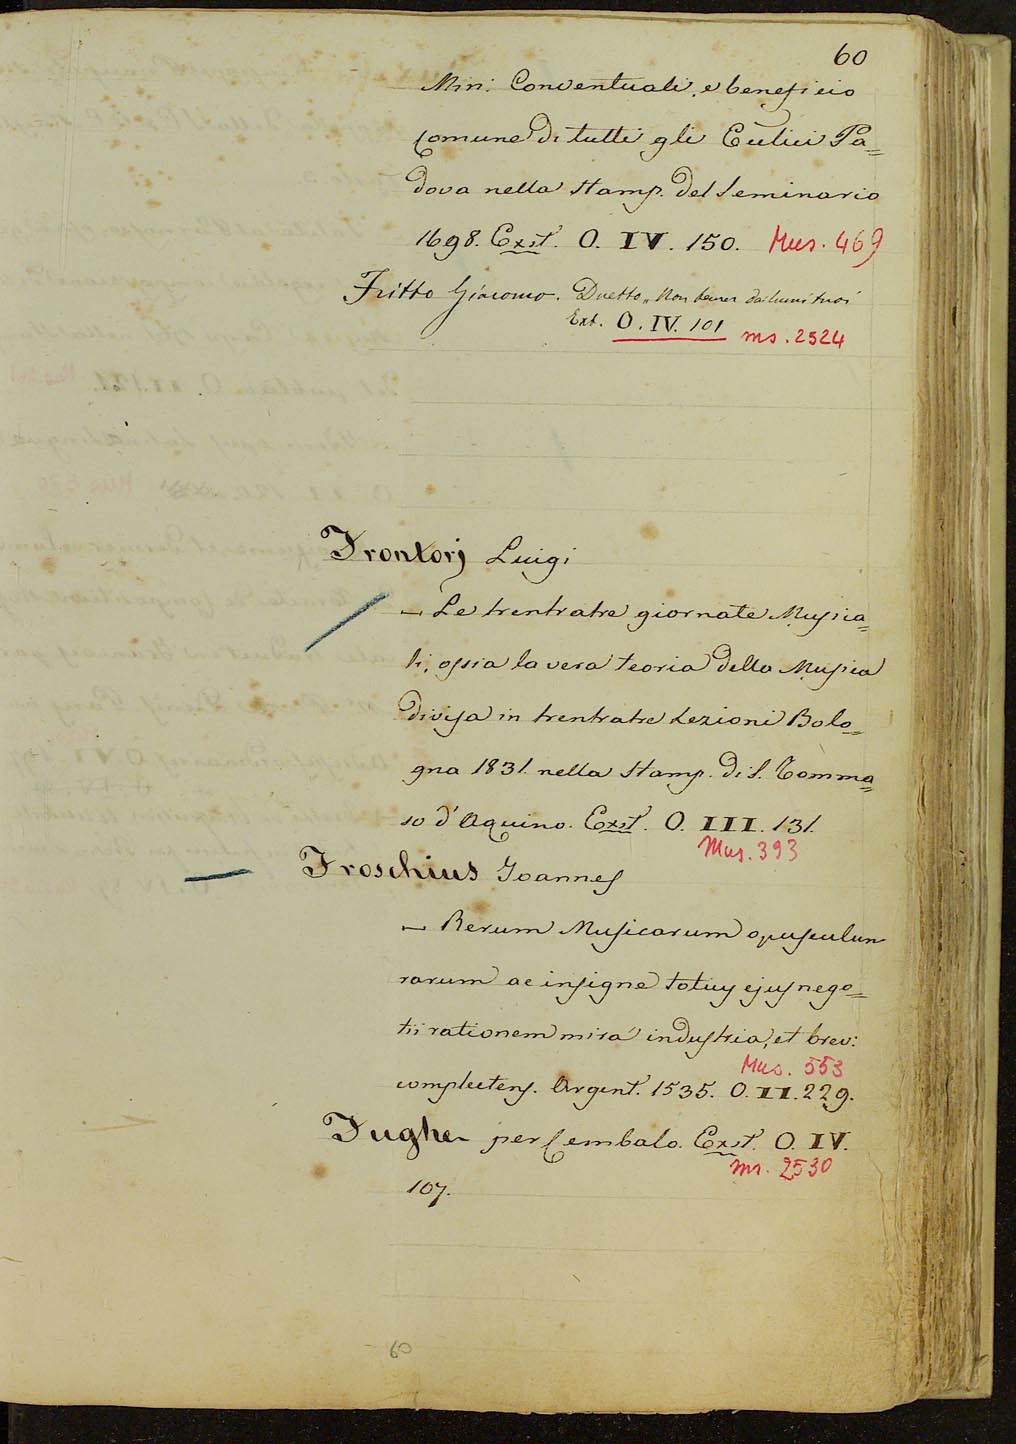 60
Min: Conventuali, e beneficio
comune di tutti gli Eccl.ici Pa=
dova nella Stamp. del Seminario
1698. Exst. O. IV. 150. Mus. 469
Fritto Giacomo. Duetto „ Non temer dai lumi tuoi
Ext. O. IV. 101
ms. 2524
Frontorj Luigi
— Le trentratre giornate Musica=
li, ossia la vera teoria della Musica
divisa in trentratre Lezioni Bolo=
gna 1831. nella Stamp. di S. Tomma=
so d'Aquino. Exst. O. III. 131.
Mus. 393
Froschius Joannes
— Rerum Musicarum opusculum
rarum ac insigne totius ejus nego=
tii rationem mira industria, et brev:
Mus. 553
complectens. Argent. 1535. O. II. 229.
Fughe per Cembalo. Exst. O. IV.
ms. 2530
107.
60